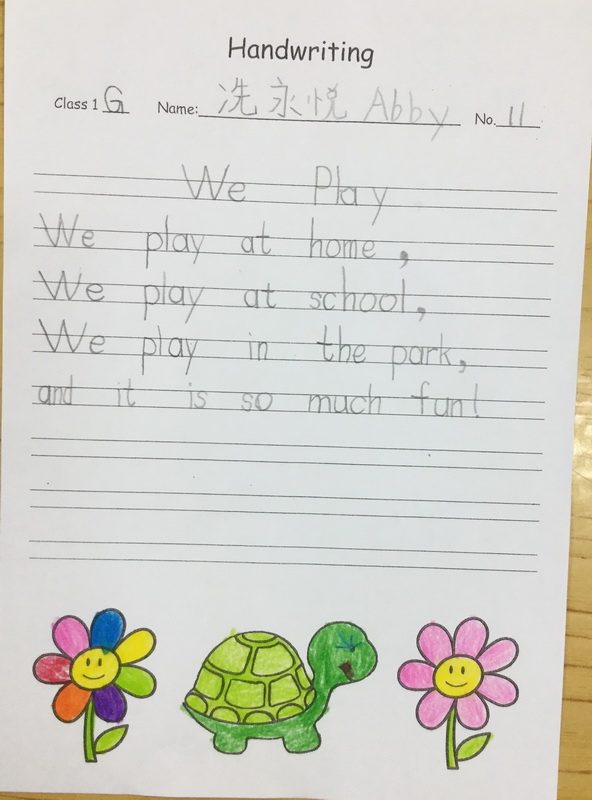 Handwriting
Class 1 G Name: 冼永悦 Abby No. 11
We Play
We play at home,
We play at school,
We play in the park,
and it is so much fun!